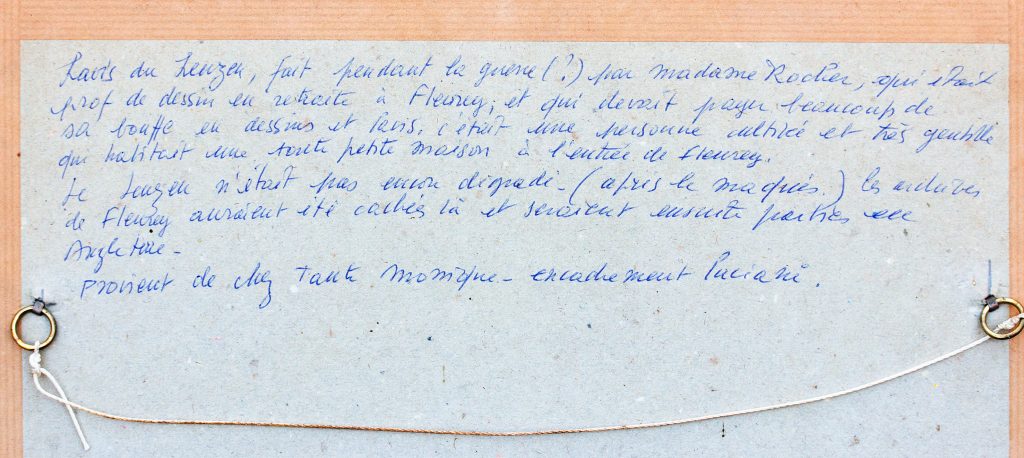 Lavis du Leuzeu, fait pendant la guerre (?) par madame Rocher, qui était
prof de dessin en retraite à Fleurey, et qui devait payer beaucoup de
sa bouffe en dessins et lavis. c'était une personne cultivée et très gentille
qui habitait une toute petite maison à l'entrée de Fleurey.
Le Leuzeu n'était pas encore dégradé - (après le maquis.) les archives
de Fleurey auraient été cachées là et seraient ensuite parties en
Angleterre -
Provient de chez Tante Monique - encadrement Luciani.